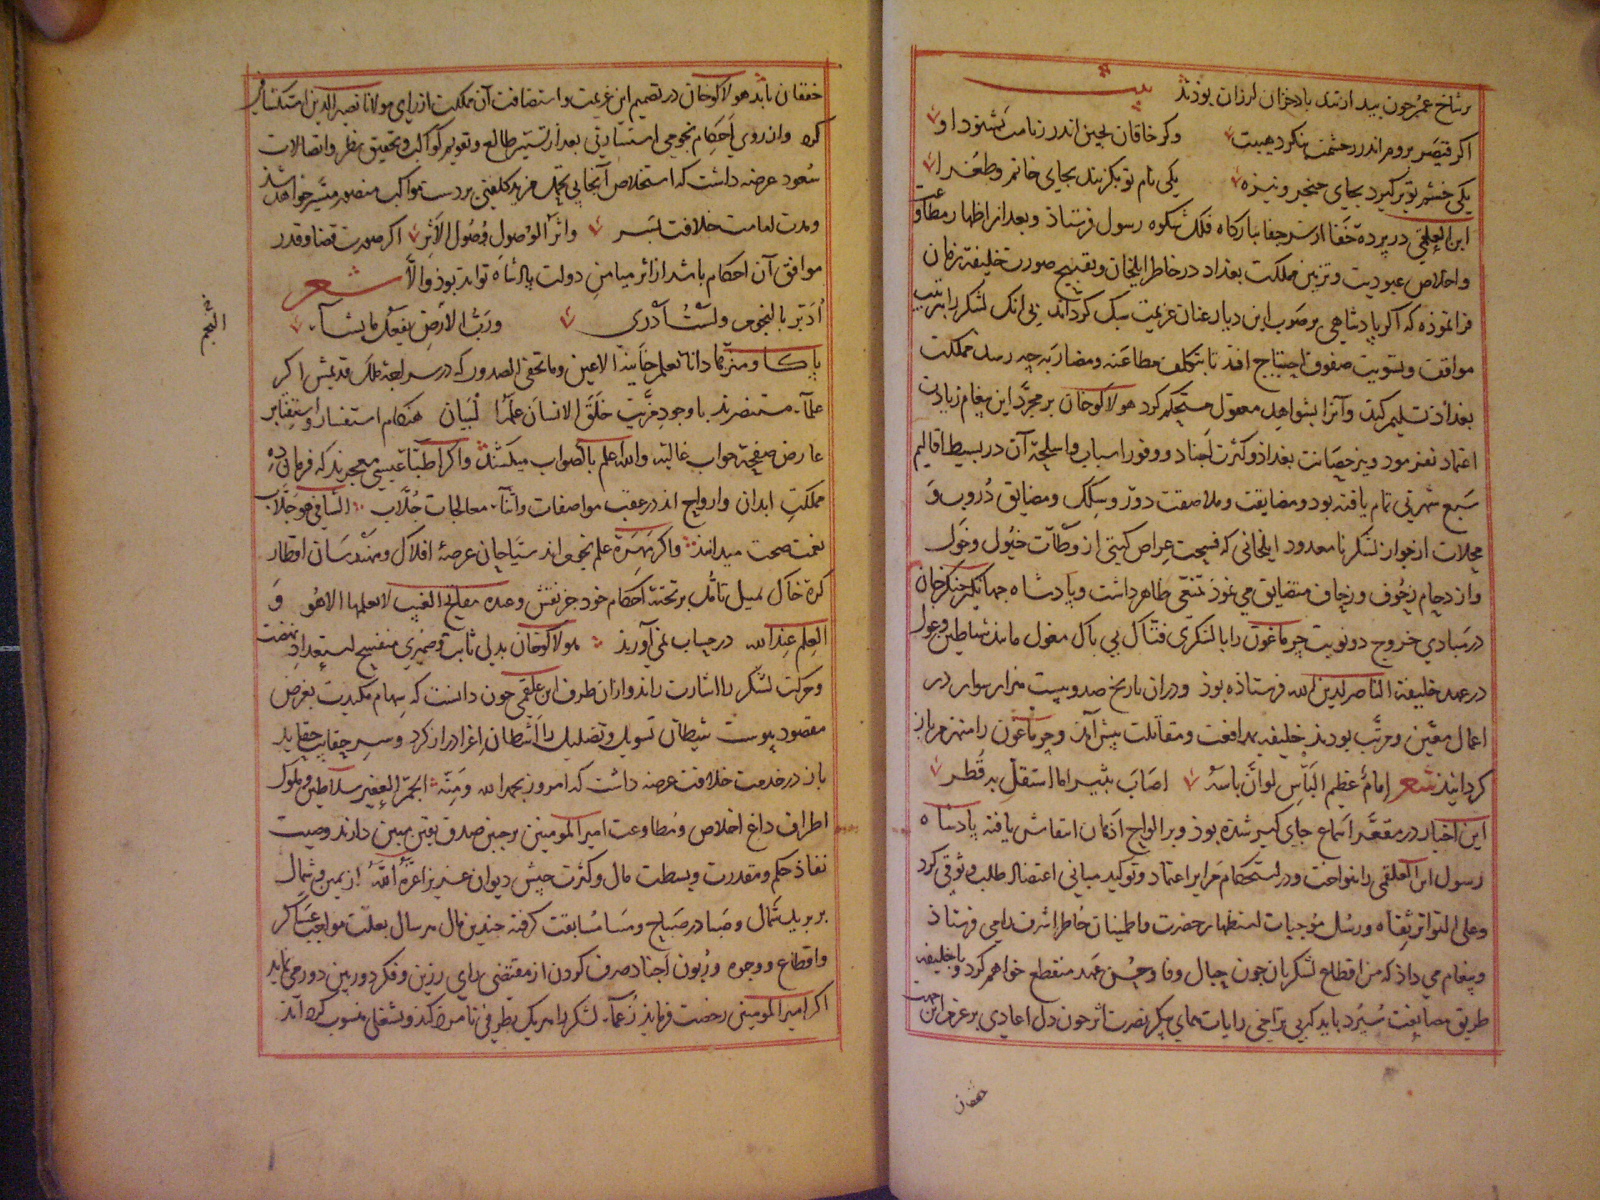 بر شاخ عمر چون بید از تند باد خزان لرزان بوذند بیت
اکر قیصر بروم اندر ز خشمت ننکرد هیبت وکر خاقان بچین اندر ز نامت نشنود او
یکی خشم تو برکیرد بجای خنجر و نیزه یکی نام تو بکزیند بجای خاتم و طغرا
ابن العلقمی در پرده خفا از سر جفا ببارکاه فلک شکوه رسول فرستاذ و بعد از اظهار مطاوعت
و اخلاص عبودیت و تزیین مملکت بغداد در خاطر ایلخان و تقبیح صورت خلیفه زمان
فرا نموذه که اکر پادشاهی بر صوب این دیار عنان عزیمت سبک کرداند بی انک لشکر را بترتیب
مواقف و تسویت صفوف احتیاج افتد تا بتکلف مطاعنه و مضاربه چه رسد مملکت
بغداد تسلیم کند و آنرا بشواهد معقول مستحکم کرد هولاکوخان بر مجرد این پیغام زیادت
اعتماد نفرمود و نیز حصانت بغداد و کثرت اجناد و وفور اسباب و اسلحه آن در بسیط اقالیم
سبع شهرتی تمام یافته بود و مضایقت و ملاصقت دور و سکک و مضایق دروب و
محلات از غوار لشکر نامعدود ایلخانی که فسحت عراص کیتی از وطآت خیول و خول
و ازدحام زحوف و رجاف متضایق می نموذ تمنعی ظاهر داشت و پادشاه جهانکیر چنکزخان
در مبادی خروج دو نوبت جرماغون را با لشکری فتاک بی باک مغول مانند شیاطین و غول
در عهد خلیفة الناصر لدین الله فرستاذه بوذ و در ان تاریخ صد و بیست هزار سوار در
اعمال معین و مرتب بودند خلیفه بمدافعت و مقاتلت پیش آمد و جرماغون را منهزم باز
کردانیدند شعر امام عظیم الباس لو ان باسه اصاب ثبیرا ما استقل به قطر
این اخبار در مقعر اسماع جای کیر شده بوذ و بر الواح اذهان انتقاش یافته پادشاه
رسول ابن العلقمی را بنواخت و در استحکام مرایر اعتماد و توکید مبانی اعتضاد طلب وثوقی کرد
و علی التواتر ثقاه و رسل موجبات استظهار حضرت و اطمینان خاطر اشرف را می فرستاذ
و پیغام می داذ که من اقطاع لشکریان چون حبال وفا و حسن عهد منقطع خواهم کرد و با خلیفه
طریق مصانعت سپرد باید که بی تراخی رایات همای پیکر نصرت اثر چون دل اعادی بر عزیمت
خفقان
خفقان باشد هولاکوخان در تصمیم این عزیمت و استضافت آن مملکت از رای مولانا نصیر الدین استکشاف
کرد وازروی احکام نجومی استنادی بعد از تسییر طالع و تقویم کواکب و تحقیق نظر و اتصالات
سعود عرضه داشت که استخلاص آنجا بی تحمل مزید کلفتی بر دست مواکب منصور میسر خواهد شد
و مدت امامت خلافت بسر و اثر الوصول وصول الاثر اکر صورت قضا و قدر
موافق آن احکام باشد از اثر میامن دولت پادشاه تواند بوذ والا شعر
ادبر بالنجوم و لست ادری ورب الارض یفعل ما یشاء
النجم
پاکا و منزها دانا یعلم خاینة الاعین وما تخفی الصدور که در سرادقه ملک قدیمش اکر
علماء مستنصرند باوجود مزیت خلق الانسان علمه البیان هنکام استفسار و استفتا بر
عارض صفیحه جواب غالیه والله اعلم بالصواب میکشند واکر اطبا عیسی معجزند که فرمان ده
مملکت ابدان و ارواح اند در عقب مواصفات و اثناء معالجات جلاب الشافی هو جلاب
نعمت صحت میدانند واکر مهره علم نجوم اند سیاحان عرصه افلاک و مهندسان اقطار
کره خاک بمیل تامل بر تخته احکام خود جز نقش وعنده مفاتح الغیب لا یعلمها الا هو و
العلم عند الله در حساب نمی آورند هولاکوخان بدلی ثابت و ضمیری منفسح استعداد نهضت
و حرکت لشکر را اشارت راند و از ان طرف ابن علقمی چون دانست که سهام مکیدت بغرض
مقصود پیوست شیطان تسویل و تضلیل را اشطان اغرا دراز کرد و سر حقایب حقاید
باز در خدمت خلافت عرضه داشت که امروز بحمد الله و منه الجم الغفیر سلاطین و ملوک
اطراف داغ اخلاص و مطاوعت امیر المومنین بر جبین صدق یقین مبین دارند و صیت
نفاذ حکم و مقدرت و بسطت مال و کثرت جیش دیوان عزیز اعزه الله از یمین و شمال
بر برید شمال و صبا در صباح و مسا مسابقت کرفته چندین مال هر سال بعلت مواجب عساکر
و اقطاع و وجوه و زبون اجناد صرف کردن از مقتضی رای رزین و فکر دوربین دور می نماید
اکر امیر المومنین رخصت فرماید زعماء لشکر را هر یک بطرفی نامزد کند و بشغلی منسوب کرداند